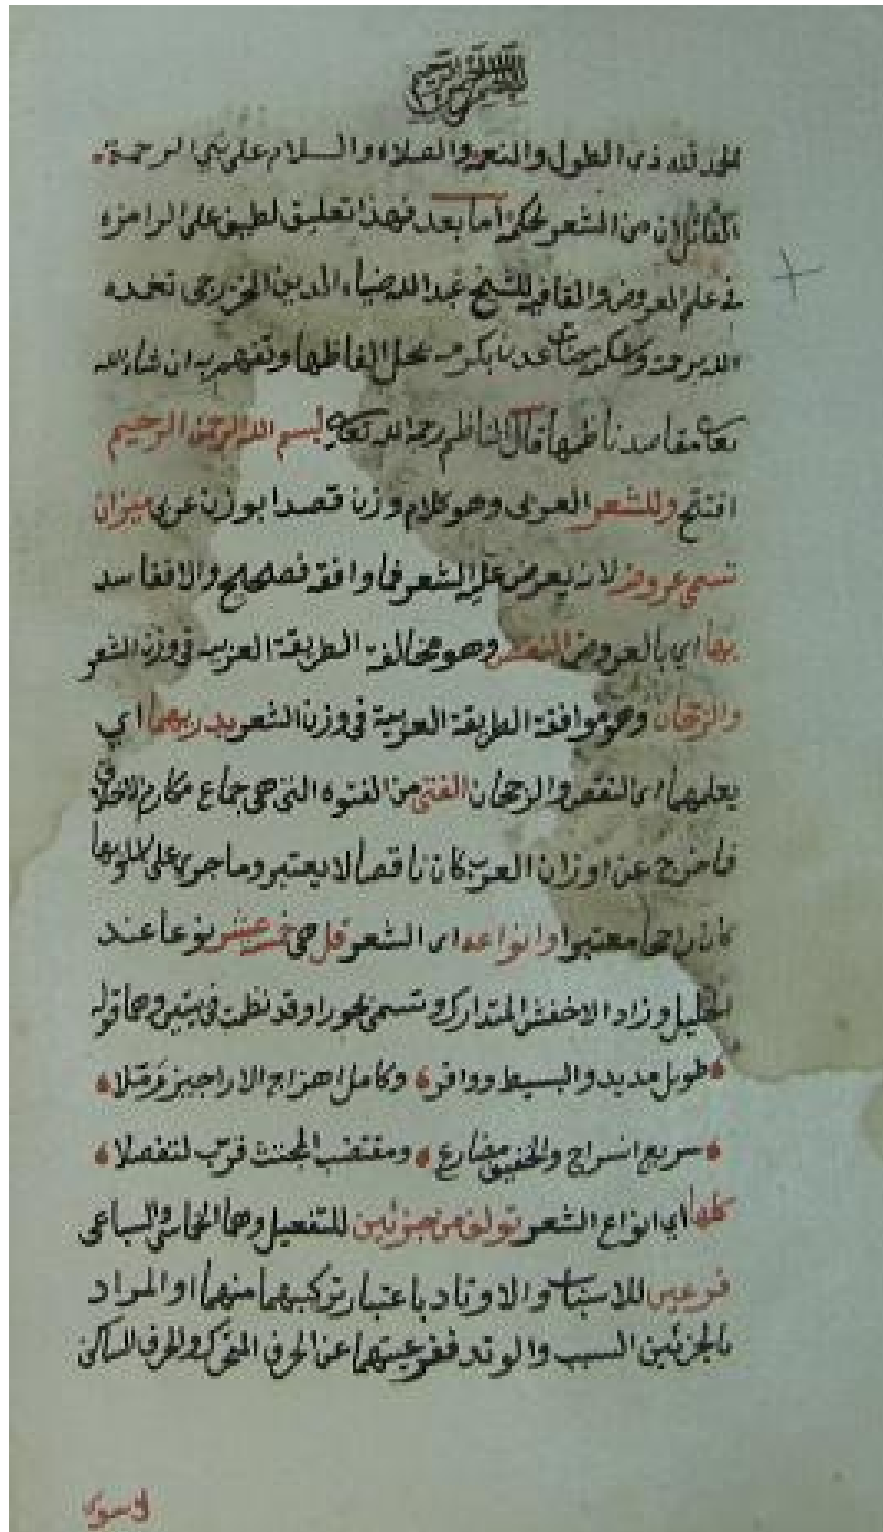 بسم الله الرحمن الرحيم
الحمد لله ذى الطول والنعمه والصلاه والسلام على نبي الرحمة
القائل ان من الشعر لحكمة أما بعد فهذا تعليق لطيف على الرامزه
في علم العروض والقافيه للشيخ عبد الله ضياء الدين الخزرجى تغمده
الله برحمته واسكنه جنات عدن بكرمه يحل الفاظها وتفهم به ان شاء الله
تعالى مقاصد ناظمها قال الناظم رحمه الله تعالى بسم الله الرحمن الرحيم
افتتح وللشعر العربى وهو كلام وزن قصدا بوزن عربى ميزان
تسمى عروضه لانه يعرض عليه الشعر فما وافقه فصحيح والا ففاسد
بها اي بالعروض النقص وهو مخالفة الطريقة العربيه فى وزن الشعر
والرجحان وهو موافقة الطريقة العربية فى وزن الشعر يدريهما اي
يعلمهما اى النقص والرجحان الفتى من الفتوه التى هى جماع مكارم الاخلاق
فما خرج عن اوزان العرب كان ناقصا لا يعتبر وما جرى على اسلوبها
كان راجحا معتبرا وانواعه اى الشعر قل هى خمسة عشر نوعا عند
الخليل وزاد الاخفش المتدارك وتسمى بحورا وقد نظمت فى بيتين وهما قوله
طويل مديد والبسيط ووافر وكامل اهزاج الاراجيز ارملا
سريع انسراح والخفيف مضارع ومقتضب المجتث قرب لتفضلا
كلها اي انواع الشعر تولف من جزئين للتفعيل وهما الخماسى والسباعى
فرعين للاسباب والاوتاد باعتبار تركيبهما منهما او المراد
بالجزئين السبب والوتد ففرعيتهما عن الحرف المتحرك والحرف الساكن